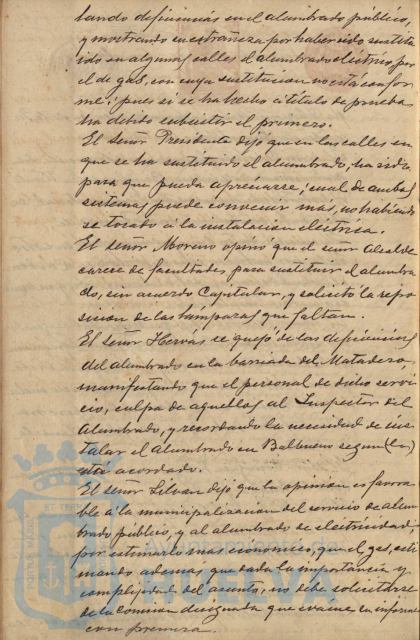 tando deficiencias en el alumbrado público,
y mostrando su extrañeza por haber sido sustitu
ido en algunas calles el alumbrado eléctrico por
el de gas, con cuya sustitucion no está confor
me; pues si se ha hecho á título de prueba,
ha debido subsistir el primero.
El Señor Presidente dijo que en las calles en
que se ha sustituido el alumbrado, ha sido
para que pueda apreciarse, cual de ambos
sistemas puede convenir más, no habiendo
se tocado á la instalacion eléctrica.
El señor Moreno opinó que el señor Alcalde
carece de facultades para sustituir el alumbra
do, sin acuerdo Capitular, y solicitó la repo
sicion de las lámparas que faltan.
El señor Hervás se quejó de las deficiencias
del alumbrado en la barriada del Matadero,
manifestando que el personal de dicho servi
cio, culpa de aquellos al Inspector del
Alumbrado, y recordando la necesidad de ins
talar el alumbrado en Balbueno segun (en)
está acordado.
El señor Silvan dijo que la opinion es favora
ble á la municipalizacion del servicio de alum
brado público, y al alumbrado de electricidad
por estimarlo mas económico, que el gas, esti
mando ademas que dada la importancia y
complejidad del asunto, no debe solicitarse
de la Comision designada que evacúe su informe
con premura.